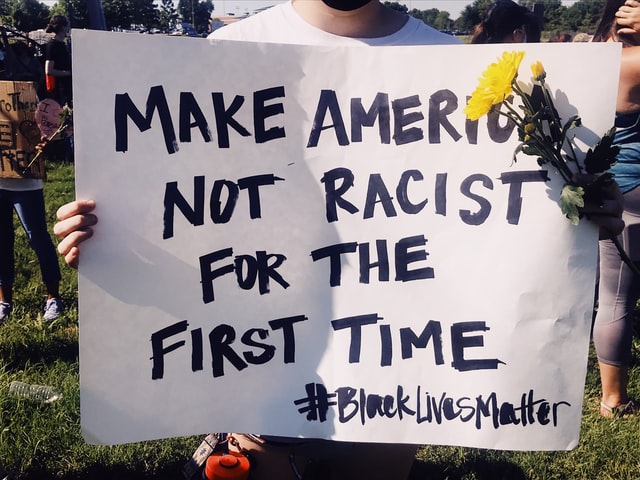 MAKE AMERIC
NOT RACIST
FOR THE
FIRST TIME
#BlackLivesMatter